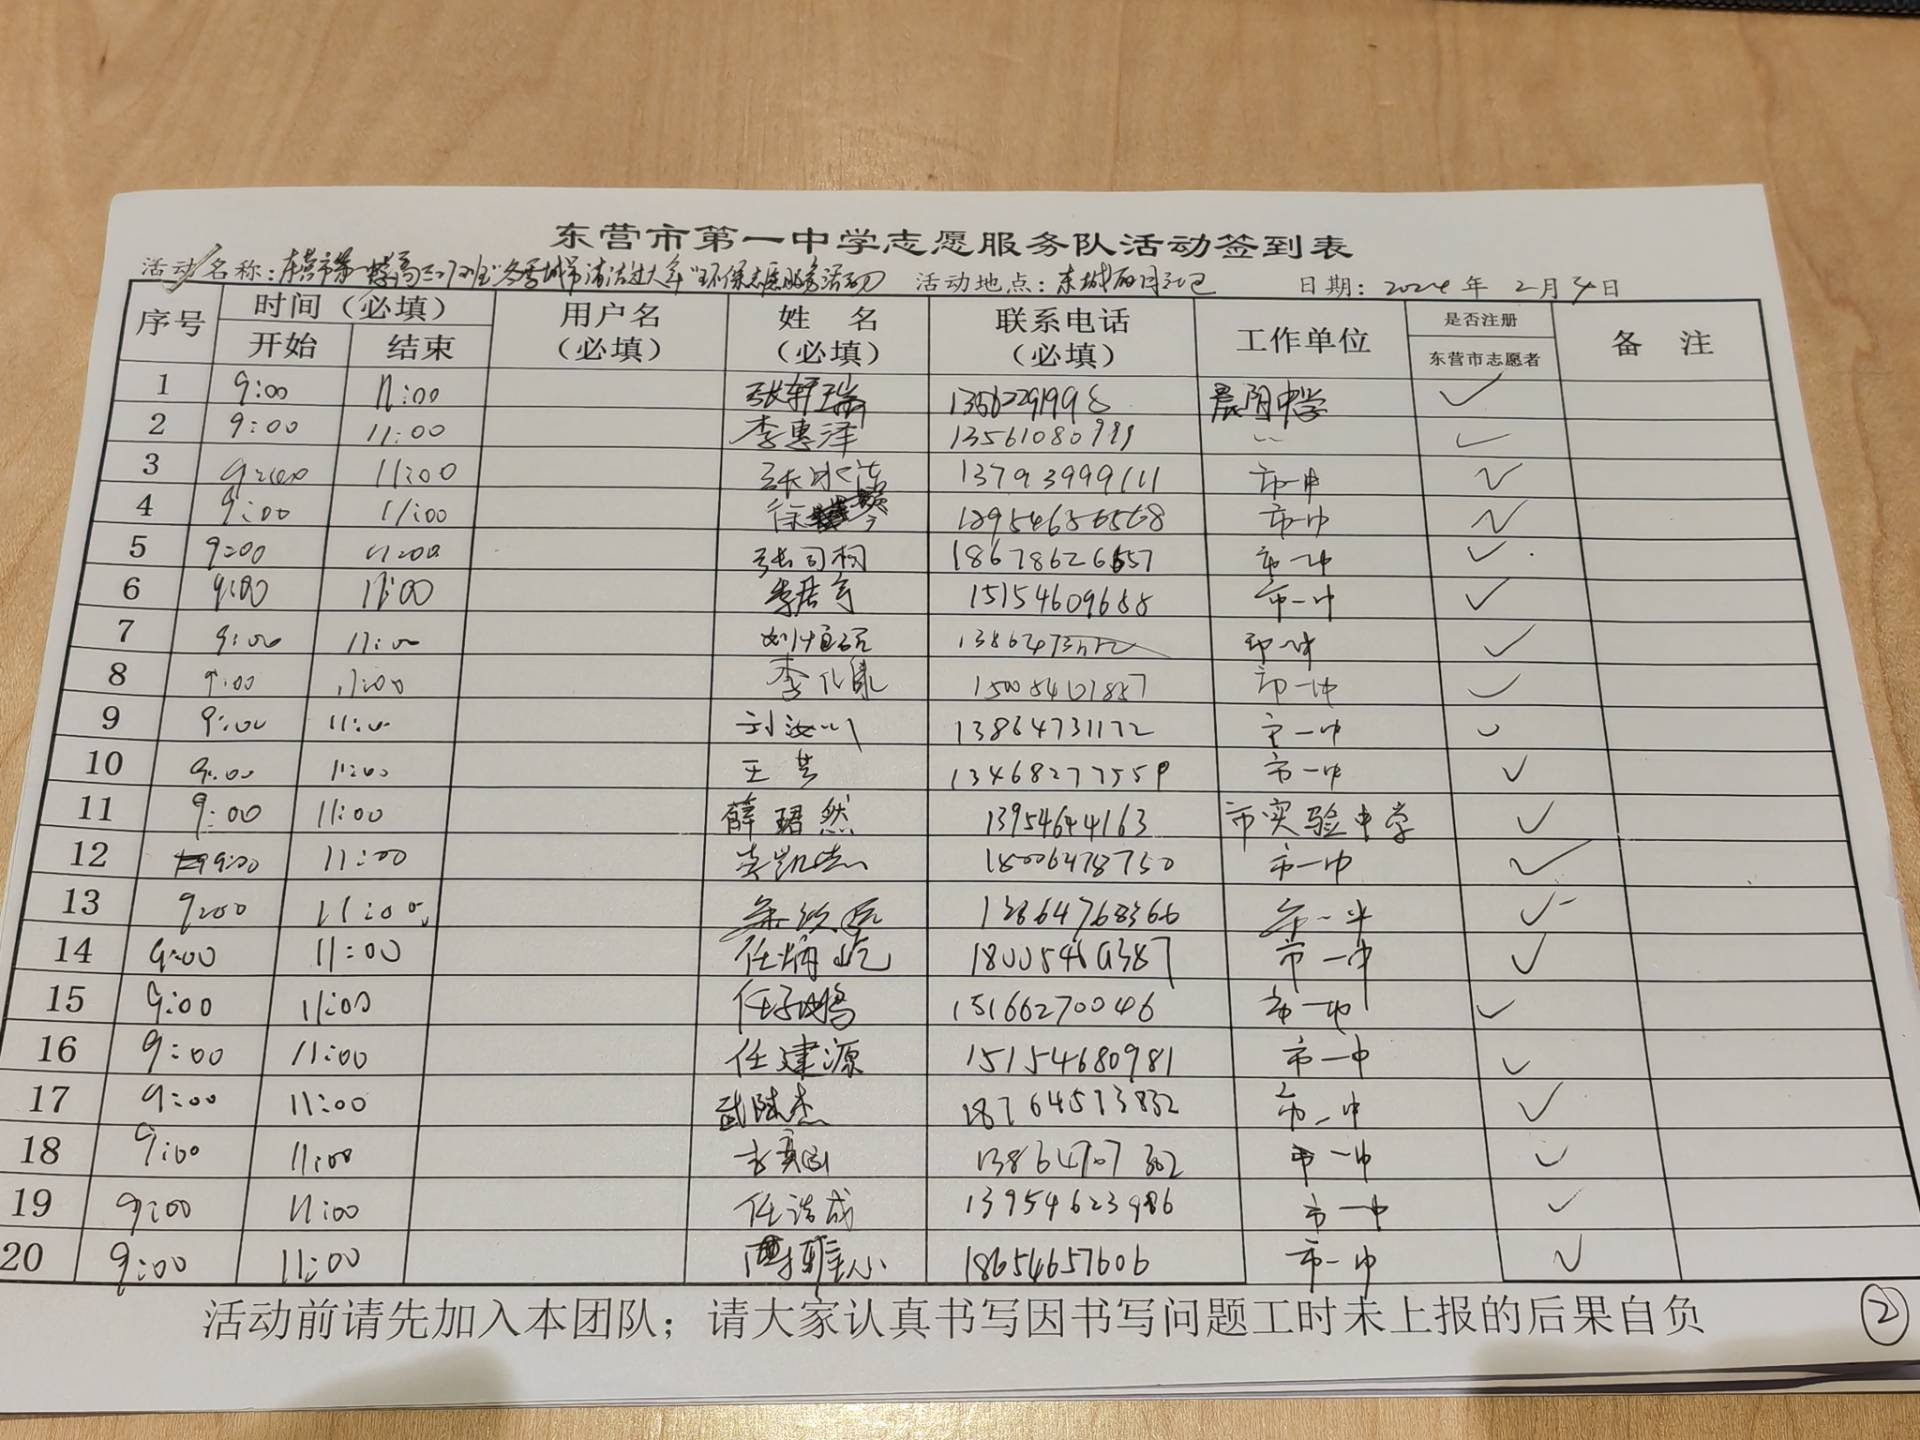 东营市第一中学志愿服务队活动签到表
活动名称：东营市第一中学高三 城市清洁过大年"环保志愿服务活动 活动地点：东城 日期：2024年 2月4日
序号 时间（必填） 用户名（必填） 姓 名（必填） 联系电话（必填） 工作单位 是否注册 备 注
开始 结束 东营市志愿者
1 9:00 11:00 张轩瑞 13562291998 晨阳中学 ✓
2 9:00 11:00 李惠泽 13561080999 〃 ✓
3 9:00 11:00 张冰洁 13793999111 市一中 ✓
4 9:00 11:00 徐 18954656568 市一中 ✓
5 9:00 11:00 张司桐 18678626657 市一中 ✓
6 9:00 11:00 李居奇 15154609688 市一中 ✓
7 9:00 11:00 刘恒 市一中 ✓
8 9:00 11:00 李 市一中 ✓
9 9:00 11:00 刘汝川 13864731172 市一中 ✓
10 9:00 11:00 王 13468277559 市一中 ✓
11 9:00 11:00 薛珺然 13954644163 市实验中学 ✓
12 9:00 11:00 李凯 18006478750 市一中 ✓
13 9:00 11:00 13864768366 市一中 ✓
14 9:00 11:00 任炳屹 市一中 ✓
15 9:00 11:00 任子鹏 15166270046 市一中 ✓
16 9:00 11:00 任建源 15154680981 市一中 ✓
17 9:00 11:00 武陈杰 18764513832 市一中 ✓
18 9:00 11:00 市一中 ✓
19 9:00 11:00 任浩成 13954623986 市一中 ✓
20 9:00 11:00 18654657606 市一中 ✓
活动前请先加入本团队；请大家认真书写因书写问题工时未上报的后果自负
②